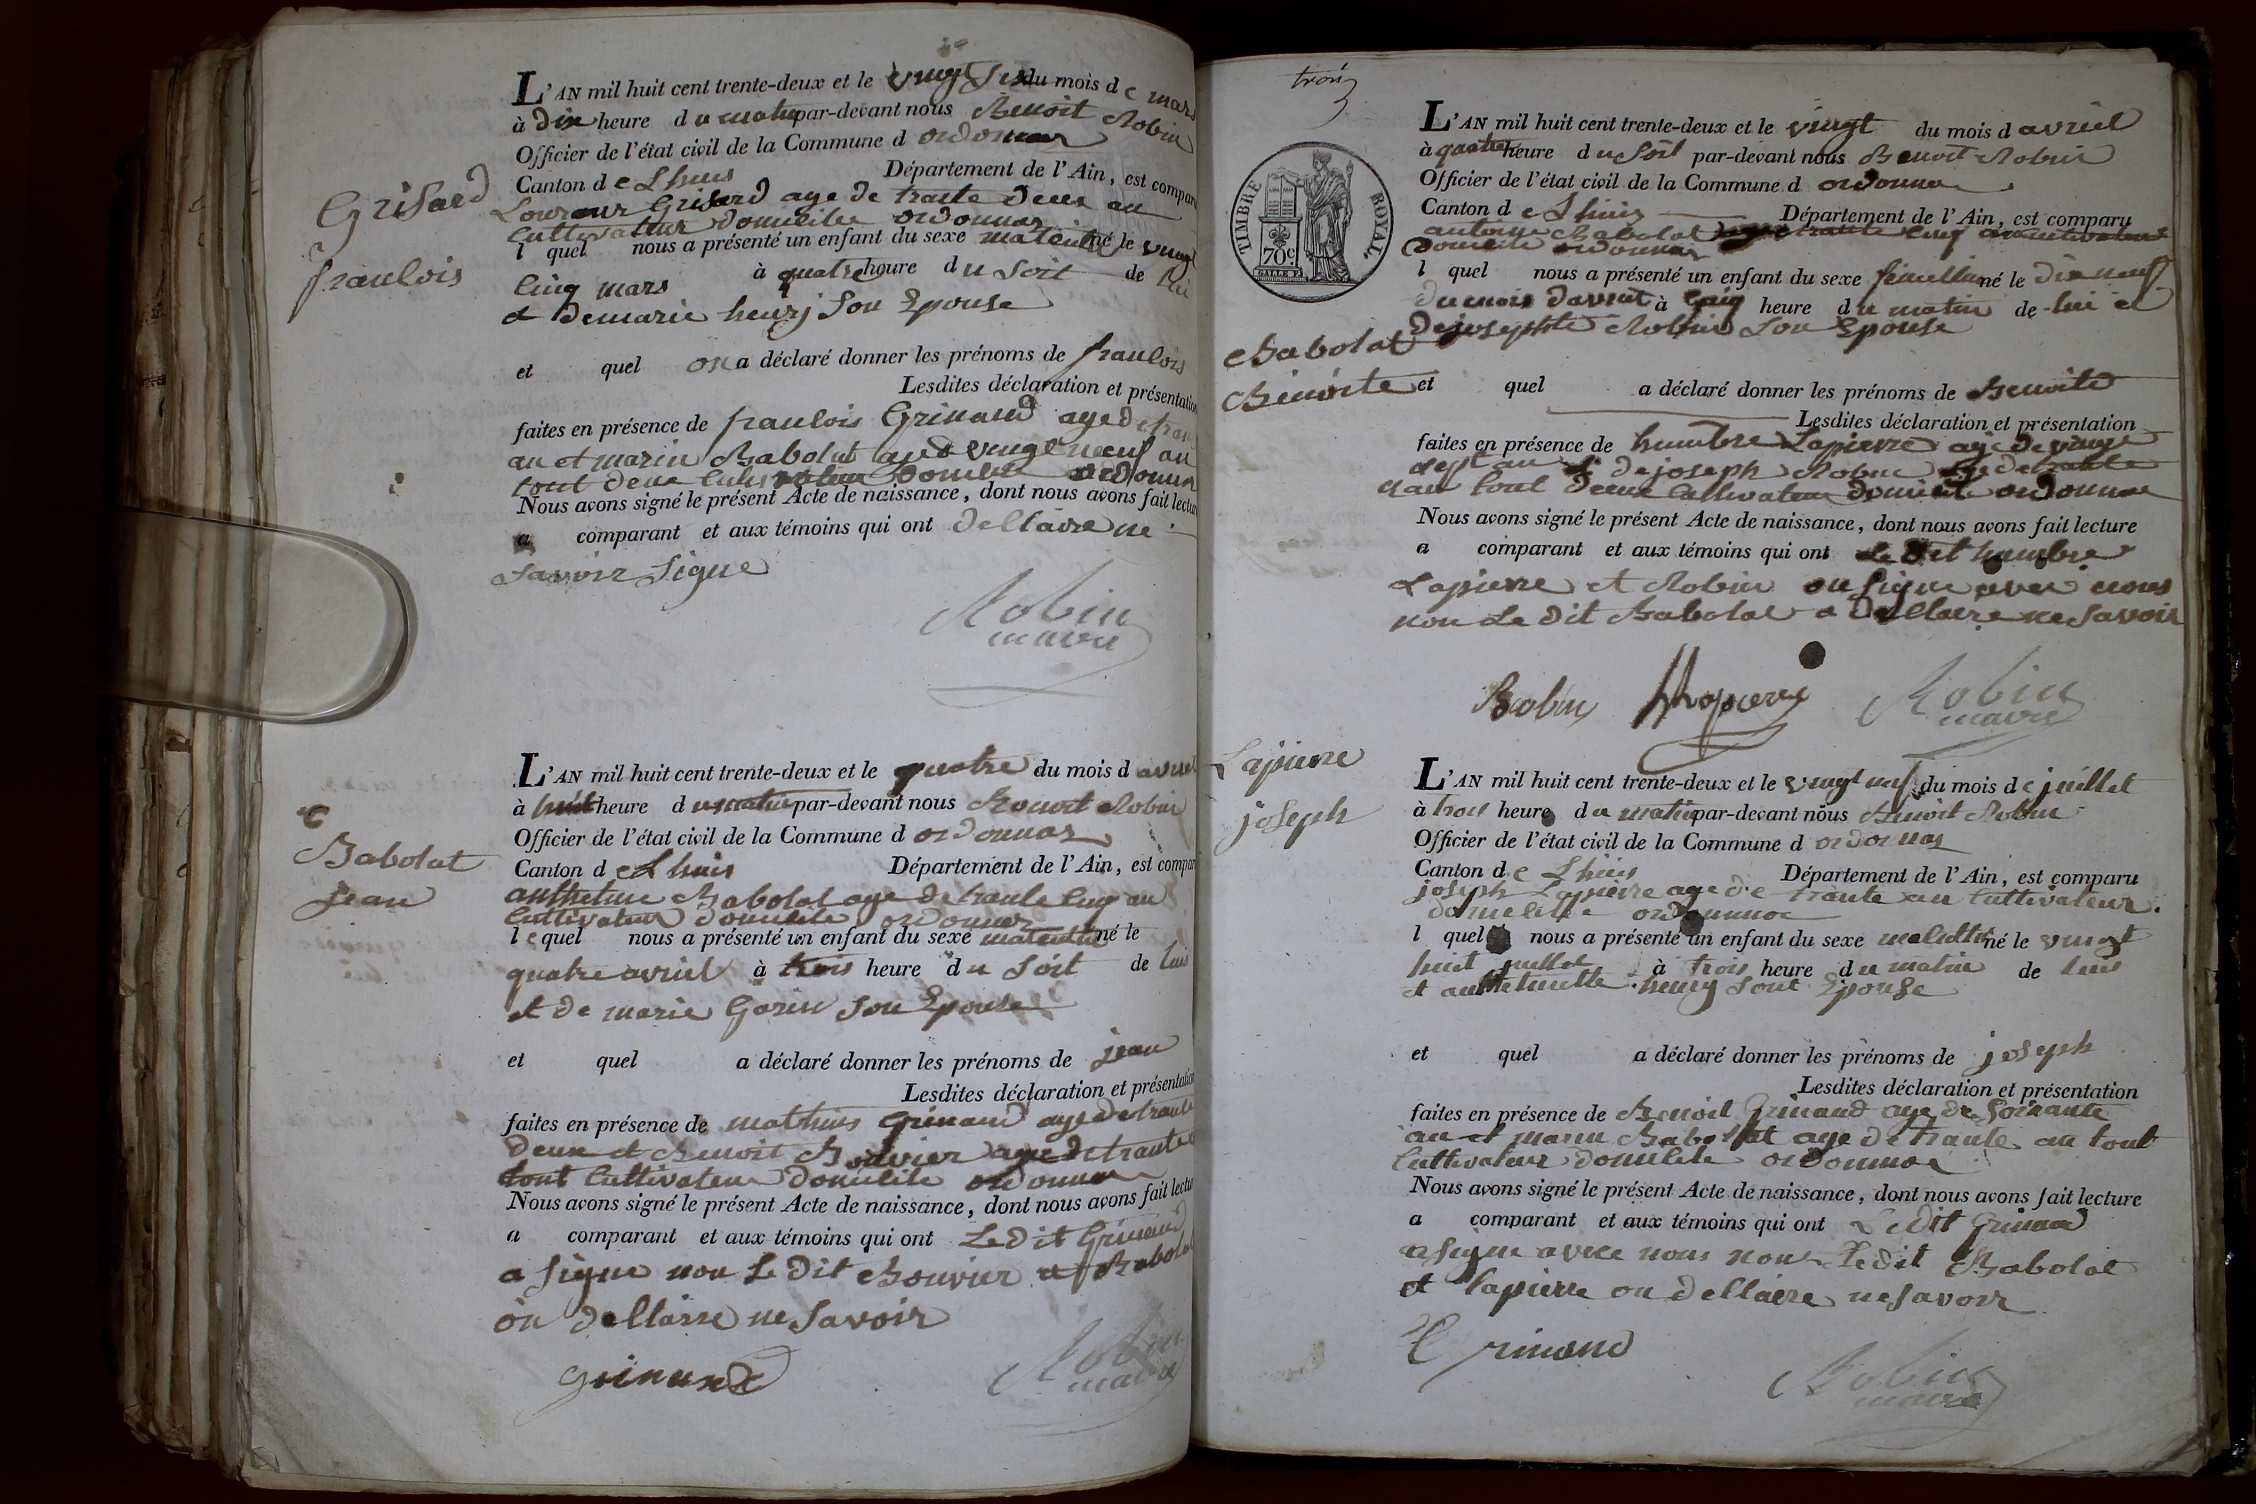 L'AN mil huit cent trente-deux et le vingt six du mois de mars
à dix heure du matin par-devant nous Benoit Robin
Officier de l'état civil de la Commune d ordonnas
Canton de Lhuis Département de l'Ain, est comparu
Grisard
Grisard age de trante deux an
cultivateur domicilie ordonnas
l quel nous a présenté un enfant du sexe né le vingt
franCois
cinq mars à quatre heure du soir de lui
et de marie henry son Epouse
et quel on a déclaré donner les prénoms de franCois
Lesdites déclaration et présentation
faites en présence de franCois Grinand age de
an et marin Babolat age vingt neuf an
tout deux domicilie ordonnas
Nous avons signé le présent Acte de naissance, dont nous avons fait lecture
a comparant et aux témoins qui ont dellaire ne
savoir signe
Robin
maire
L'AN mil huit cent trente-deux et le quatre du mois d avriel
à huit heure du matin par-devant nous Benoit Robin
Officier de l'état civil de la Commune d ordonnas
Babolat
Canton de Lhuis Département de l'Ain, est comparu
jean
anthelme Babolat age de trante cinq an
cultivateur domicilie ordonnas
le quel nous a présenté un enfant du sexe né le
quatre avriel à trois heure du soir de lui
et de marie Gorin son Epouse
et quel a déclaré donner les prénoms de jean
Lesdites déclaration et présentation
faites en présence de mathieu Grinand age de trante
deux et Benoit Bouvier age de trante
tout cultivateur domicilie ordonnas
Nous avons signé le présent Acte de naissance, dont nous avons fait lecture
a comparant et aux témoins qui ont Le dit Grinand
a signe non Le dit Bouvier et Babolat
on dellaire ne savoir
Grinand
Robin
maire
trois
TIMBRE ROYAL
70c.
L'AN mil huit cent trente-deux et le vingt du mois d avriel
à quatre heure du soir par-devant nous Benoit Robin
Officier de l'état civil de la Commune d ordonnas
Canton de Lhuis Département de l'Ain, est comparu
antoine Babolat age trante cinq an cultivateur
domicilie ordonnas
l quel nous a présenté un enfant du sexe né le dix neuf
du mois davriel à cinq heure du matin de lui et
de josephte Robin son Epouse
Babolat
Benoite
et quel a déclaré donner les prénoms de Benoite
Lesdites déclaration et présentation
faites en présence de humbre Lapierre age de vingt
sept an de joseph Robin age de trante
an tout deux cultivateur domicilie ordonnas
Nous avons signé le présent Acte de naissance, dont nous avons fait lecture
a comparant et aux témoins qui ont Le dit humbre
Lapierre et Robin on signe avec nous
non Le dit Babolat a dellaire ne savoir
Robin Lapierre Robin
maire
Lapierre
joseph
L'AN mil huit cent trente-deux et le vingt neuf du mois de juillet
à trois heure du matin par-devant nous Benoit Robin
Officier de l'état civil de la Commune d ordonnas
Canton de Lhuis Département de l'Ain, est comparu
joseph Lapierre age de trante an cultivateur
domicilie ordonnas
l quel nous a présenté un enfant du sexe né le vingt
huit juillet à trois heure du matin de lui
et anthelmette henry son Epouse
et quel a déclaré donner les prénoms de joseph
Lesdites déclaration et présentation
faites en présence de Benoit Grinand age de soixante
an et marin Babolat age de trante an tout
cultivateur domicilie ordonnas
Nous avons signé le présent Acte de naissance, dont nous avons fait lecture
a comparant et aux témoins qui ont Le dit Grinand
a signe avec nous non Le dit Babolat
et lapierre on dellaire ne savoir
Grinand
Robin
maire